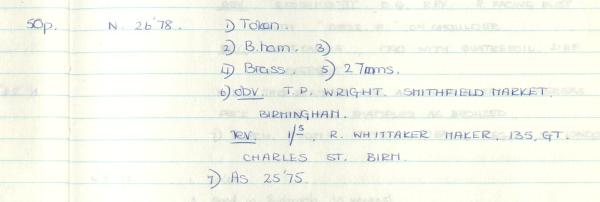 50p. N. 26'78. 1) Token
2) B.ham. 3)
4) Brass. 5) 27mms.
6) obv. T.P. WRIGHT. SMITHFIELD MARKET.
BIRMINGHAM.
rev. 1/s. R. WHITTAKER MAKER. 135, GT.
CHARLES ST. BIRM.
7) As 25'75.